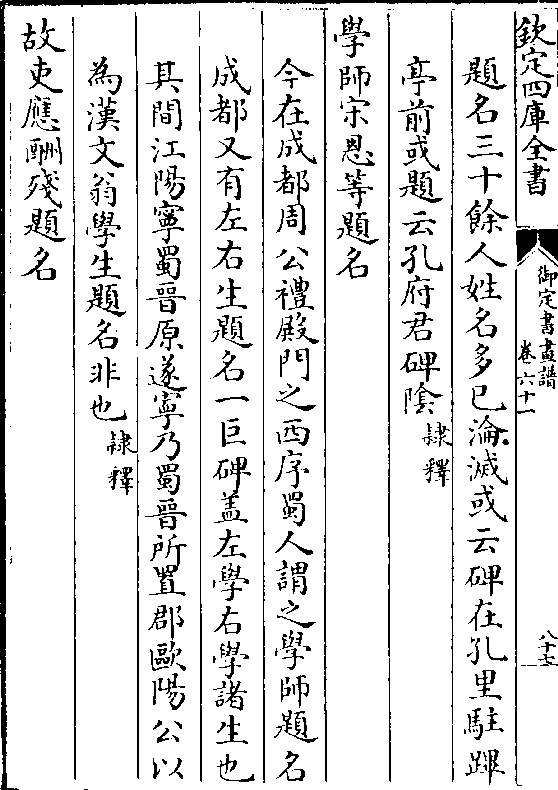 欽定四庫全書
御定書畫譜
卷六十一
八十七
題名三十餘人姓名多已淪滅或云碑在孔里駐蹕
亭前或題云孔府君碑陰隸釋
學師宋恩等題名
今在成都周公禮殿門之西序蜀人謂之學師題名
成都又有左右生題名一巨碑盖左學右學諸生也
其間江陽寧蜀晉原遂寧乃蜀晉所置郡歐陽公以
為漢文翁學生題名非也隸釋
故吏應酬殘題名